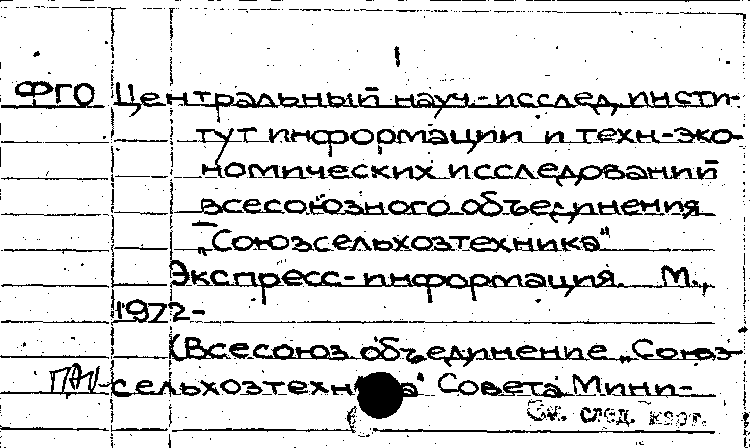 1
ФГО Центральный науч.-исслед. инсти-
тут информации и техн.-эко-
номических исследований
всесоюзного объединения
„Союзсельхозтехника"
Экспресс-информация. М.,
1972-
(Всесоюз. объединение „Союз-
сельхозтехника" Совета Мини-
См. след. карт.